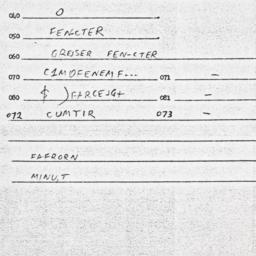 040 0
050 FENCTER
060 GROSER FEN-CTER
070 C1MOFENEMF... 071 –
080 $ )FARCESG+ 081 –
072 CUMTIR 073 –
FAFRORN
MINU,T